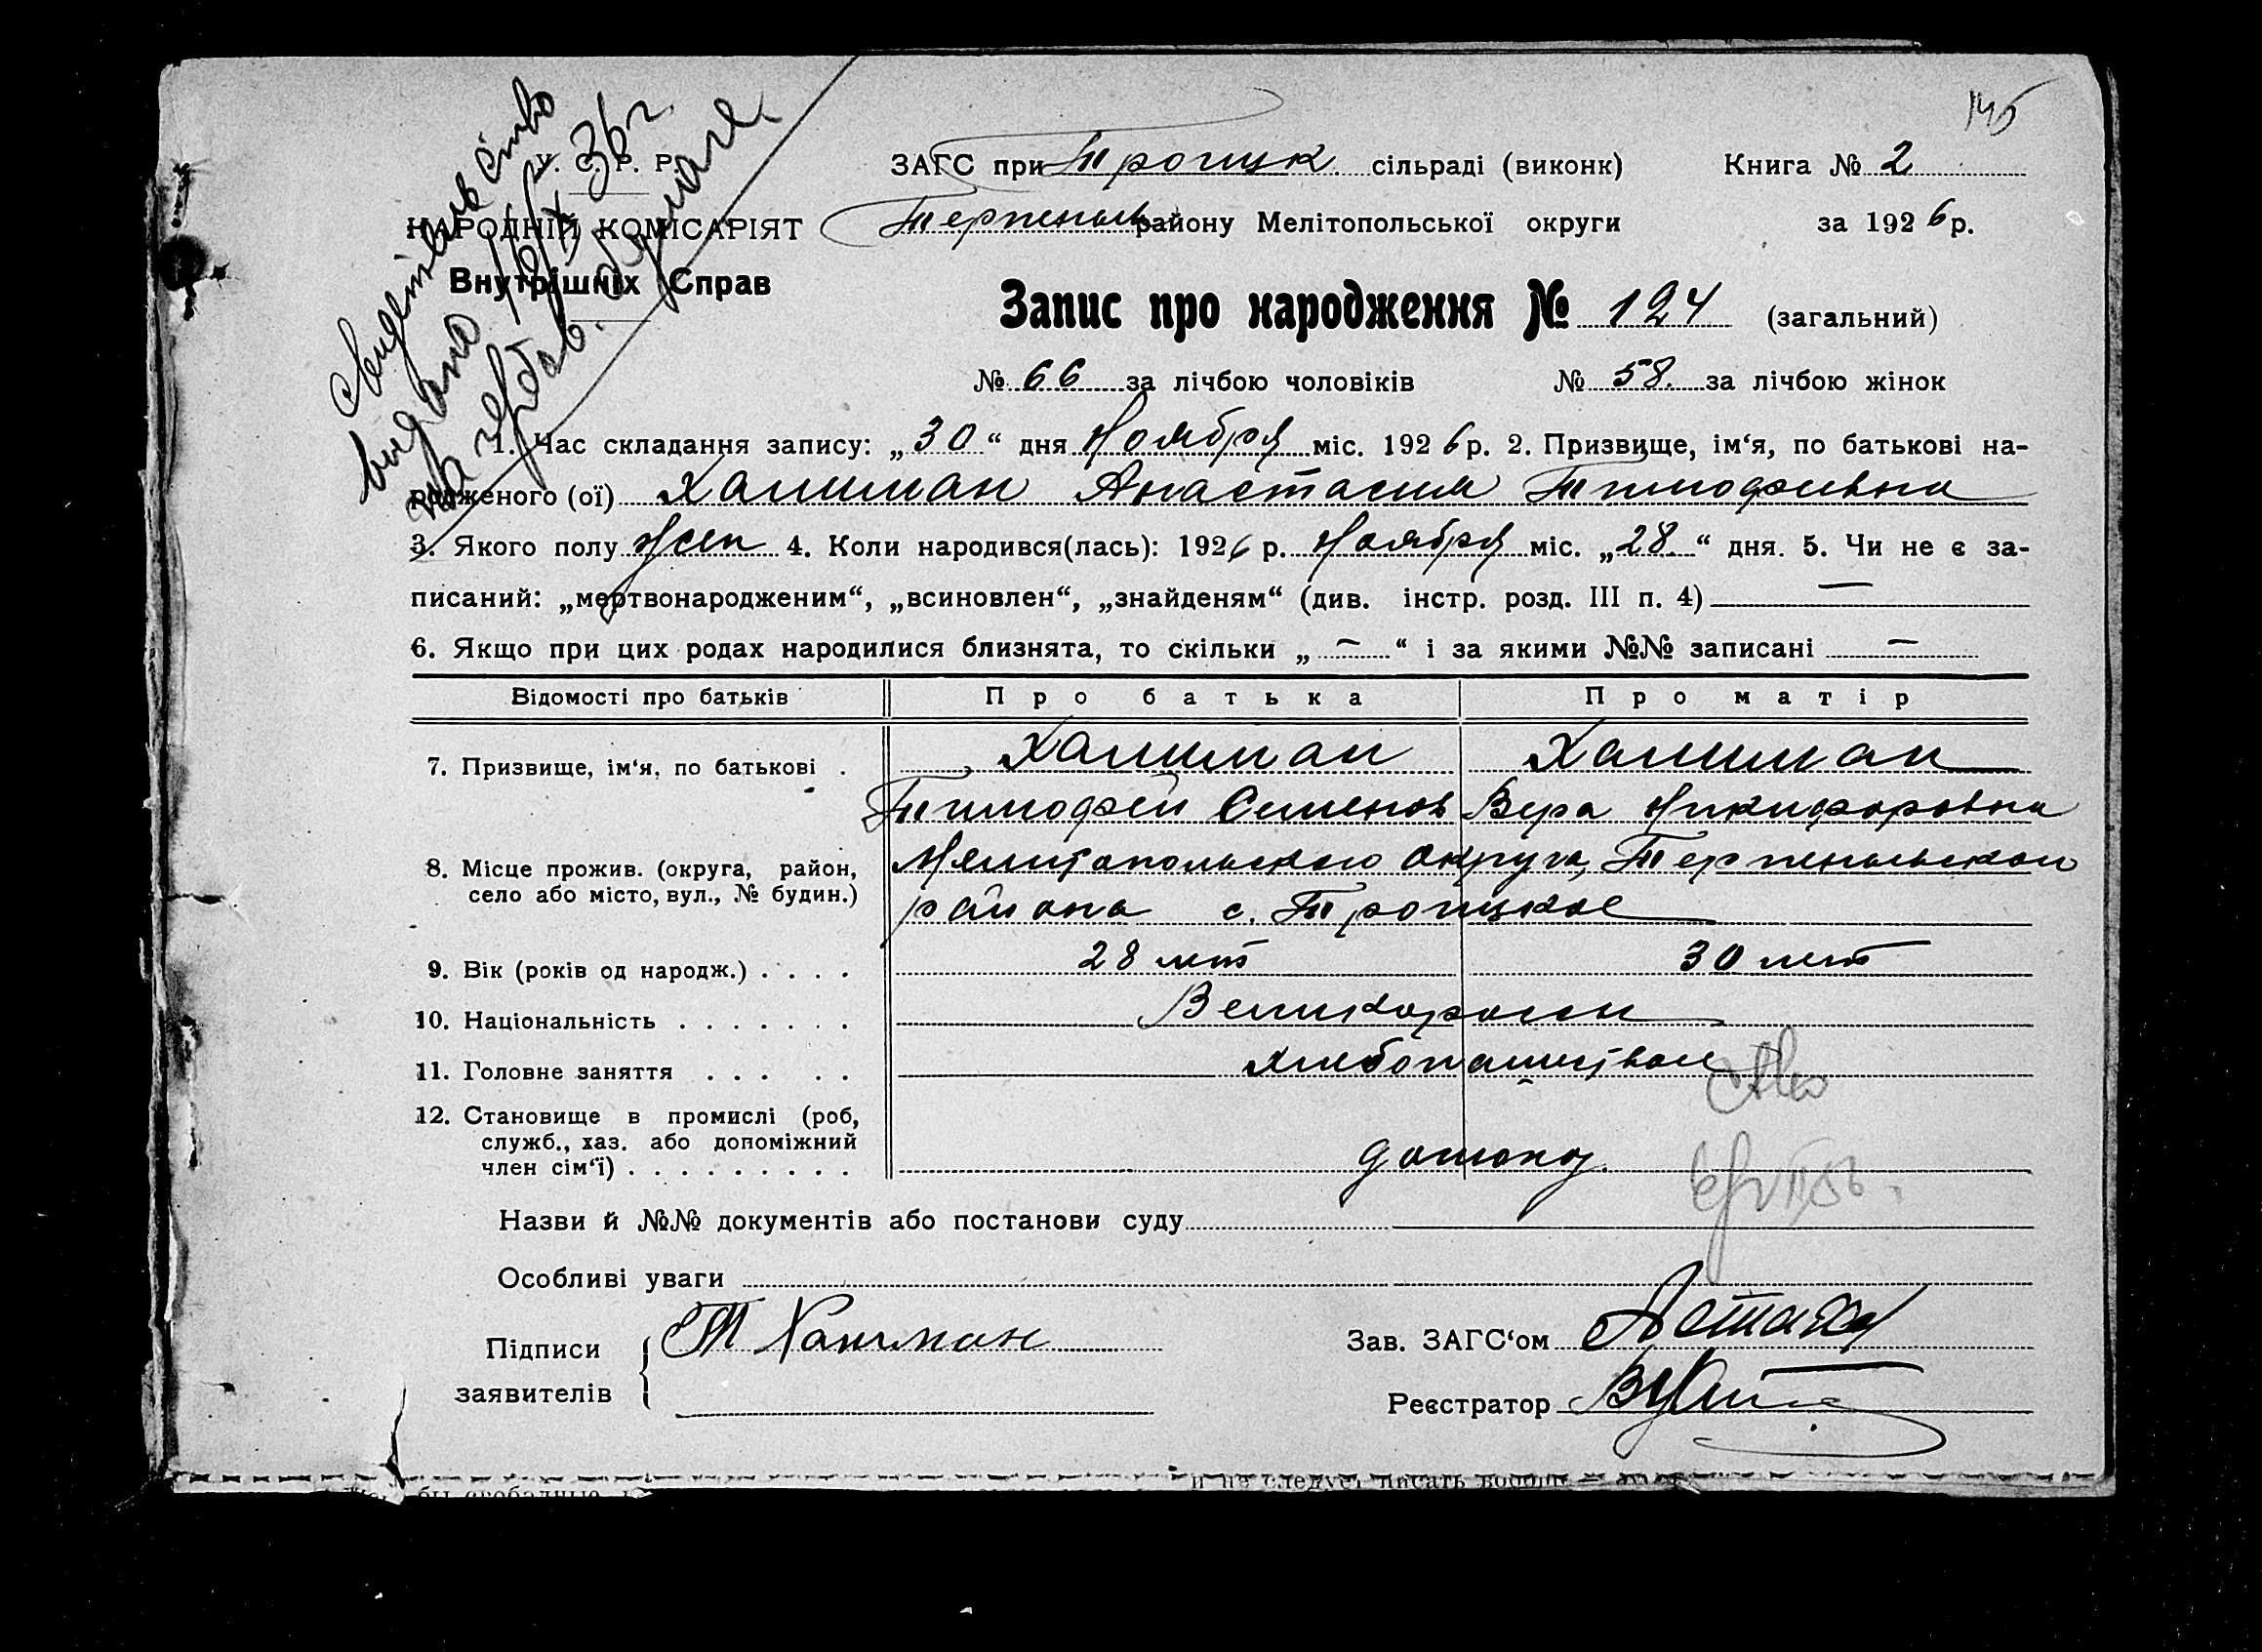 145
Свидетельство
выдано 16/IX 36 г.
на гербов. бумаге.
У. С. Р. Р.
НАРОДНІЙ КОМІСАРІЯТ
Внутрішніх Справ
ЗАГС при Троицк. сільраді (виконк) Книга № 2
Терпеньев району Мелітопольської округи за 1926 р.
Запис про народження № 124 (загальний)
№ 66 за лічбою чоловіків № 58. за лічбою жінок
1. Час складання запису: „30“ дня Ноября міс. 1926 р. 2. Призвище, ім‘я, по батькові на-
родженого (ої) Халиман Анастасия Тимофеевна
3. Якого полу жен 4. Коли народився(лась): 1926 р. Ноября міс. „28.“ дня. 5. Чи не є за-
писаний: „мертвонародженим“, „всиновлен“, „знайденям“ (див. інстр. розд. III п. 4) —
6. Якщо при цих родах народилися близнята, то скільки „ — “ і за якими №№ записані —
Відомості про батьків Про батька Про матір
7. Призвище, ім‘я, по батькові . Халиман Халиман
Тимофей Семенов Вера Никифоровна
8. Місце прожив. (округа, район, Мелитопольского округа, Терпеньевского
село або місто, вул., № будин.) района с. Троицкое
9. Вік (років од народж.) . . . . 28 лет 30 лет
10. Національність . . . . . . . Великороссы
11. Головне заняття . . . . . хлебопашеством
12. Становище в промислі (роб,
служб., хаз. або допоміжний
член сім‘ї) . . . . . . . . .
Назви й №№ документів або постанови суду
Особливі уваги
Підписи Т Халиман Зав. ЗАГС‘ом
заявителів Реєстратор
и не следует писать